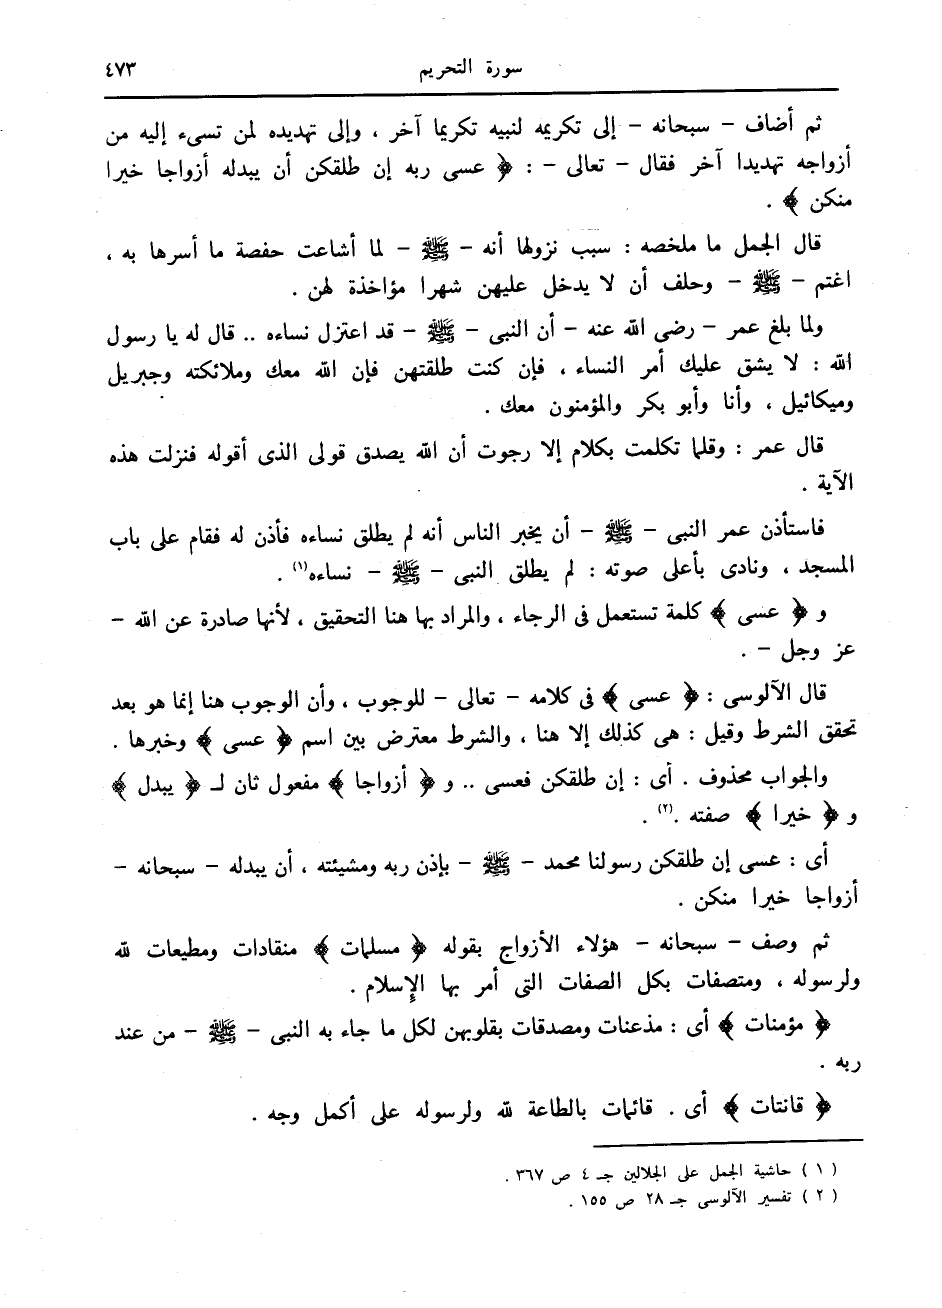 سورة التحريم ٤٧٣
ثم أضاف – سبحانه – إلى تكريمه لنبيه تكريما آخر ، وإلى تهديده لمن تسىء إليه من
أزواجه تهديدا آخر فقال – تعالى – : ﴿ عسى ربه إن طلقكن أن يبدله أزواجا خيرا
منكن ﴾ .
قال الجمل ما ملخصه : سبب نزولها أنه – ﷺ – لما أشاعت حفصة ما أسرها به ،
اغتم – ﷺ – وحلف أن لا يدخل عليهن شهرا مؤاخذة لهن .
ولما بلغ عمر – رضى الله عنه – أن النبى – ﷺ – قد اعتزل نساءه .. قال له يا رسول
الله : لا يشق عليك أمر النساء ، فإن كنت طلقتهن فإن الله معك وملائكته وجبريل
وميكائيل ، وأنا وأبو بكر والمؤمنون معك .
قال عمر : وقلما تكلمت بكلام إلا رجوت أن الله يصدق قولى الذى أقوله فنزلت هذه
الآية .
فاستأذن عمر النبى – ﷺ – أن يخبر الناس أنه لم يطلق نساءه فأذن له فقام على باب
المسجد ، ونادى بأعلى صوته : لم يطلق النبى – ﷺ – نساءه(١) .
و ﴿ عسى ﴾ كلمة تستعمل فى الرجاء ، والمراد بها هنا التحقيق ، لأنها صادرة عن الله –
عز وجل – .
قال الآلوسى : ﴿ عسى ﴾ فى كلامه – تعالى – للوجوب ، وأن الوجوب هنا إنما هو بعد
تحقق الشرط وقيل : هى كذلك إلا هنا ، والشرط معترض بين اسم ﴿ عسى ﴾ وخبرها .
والجواب محذوف . أى : إن طلقكن فعسى .. و ﴿ أزواجا ﴾ مفعول ثان لـ ﴿ يبدل ﴾
و ﴿ خيرا ﴾ صفته .(٢) .
أى : عسى إن طلقكن رسولنا محمد – ﷺ – بإذن ربه ومشيئته ، أن يبدله – سبحانه –
أزواجا خيرا منكن .
ثم وصف – سبحانه – هؤلاء الأزواج بقوله ﴿ مسلمات ﴾ منقادات ومطيعات لله
ولرسوله ، ومتصفات بكل الصفات التى أمر بها الإسلام .
﴿ مؤمنات ﴾ أى : مذعنات ومصدقات بقلوبهن لكل ما جاء به النبى – ﷺ – من عند
ربه .
﴿ قانتات ﴾ أى . قائمات بالطاعة لله ولرسوله على أكمل وجه .
( ١ ) حاشية الجمل على الجلالين جـ ٤ ص ٣٦٧ .
( ٢ ) تفسير الآلوسى جـ ٢٨ ص ١٥٥ .